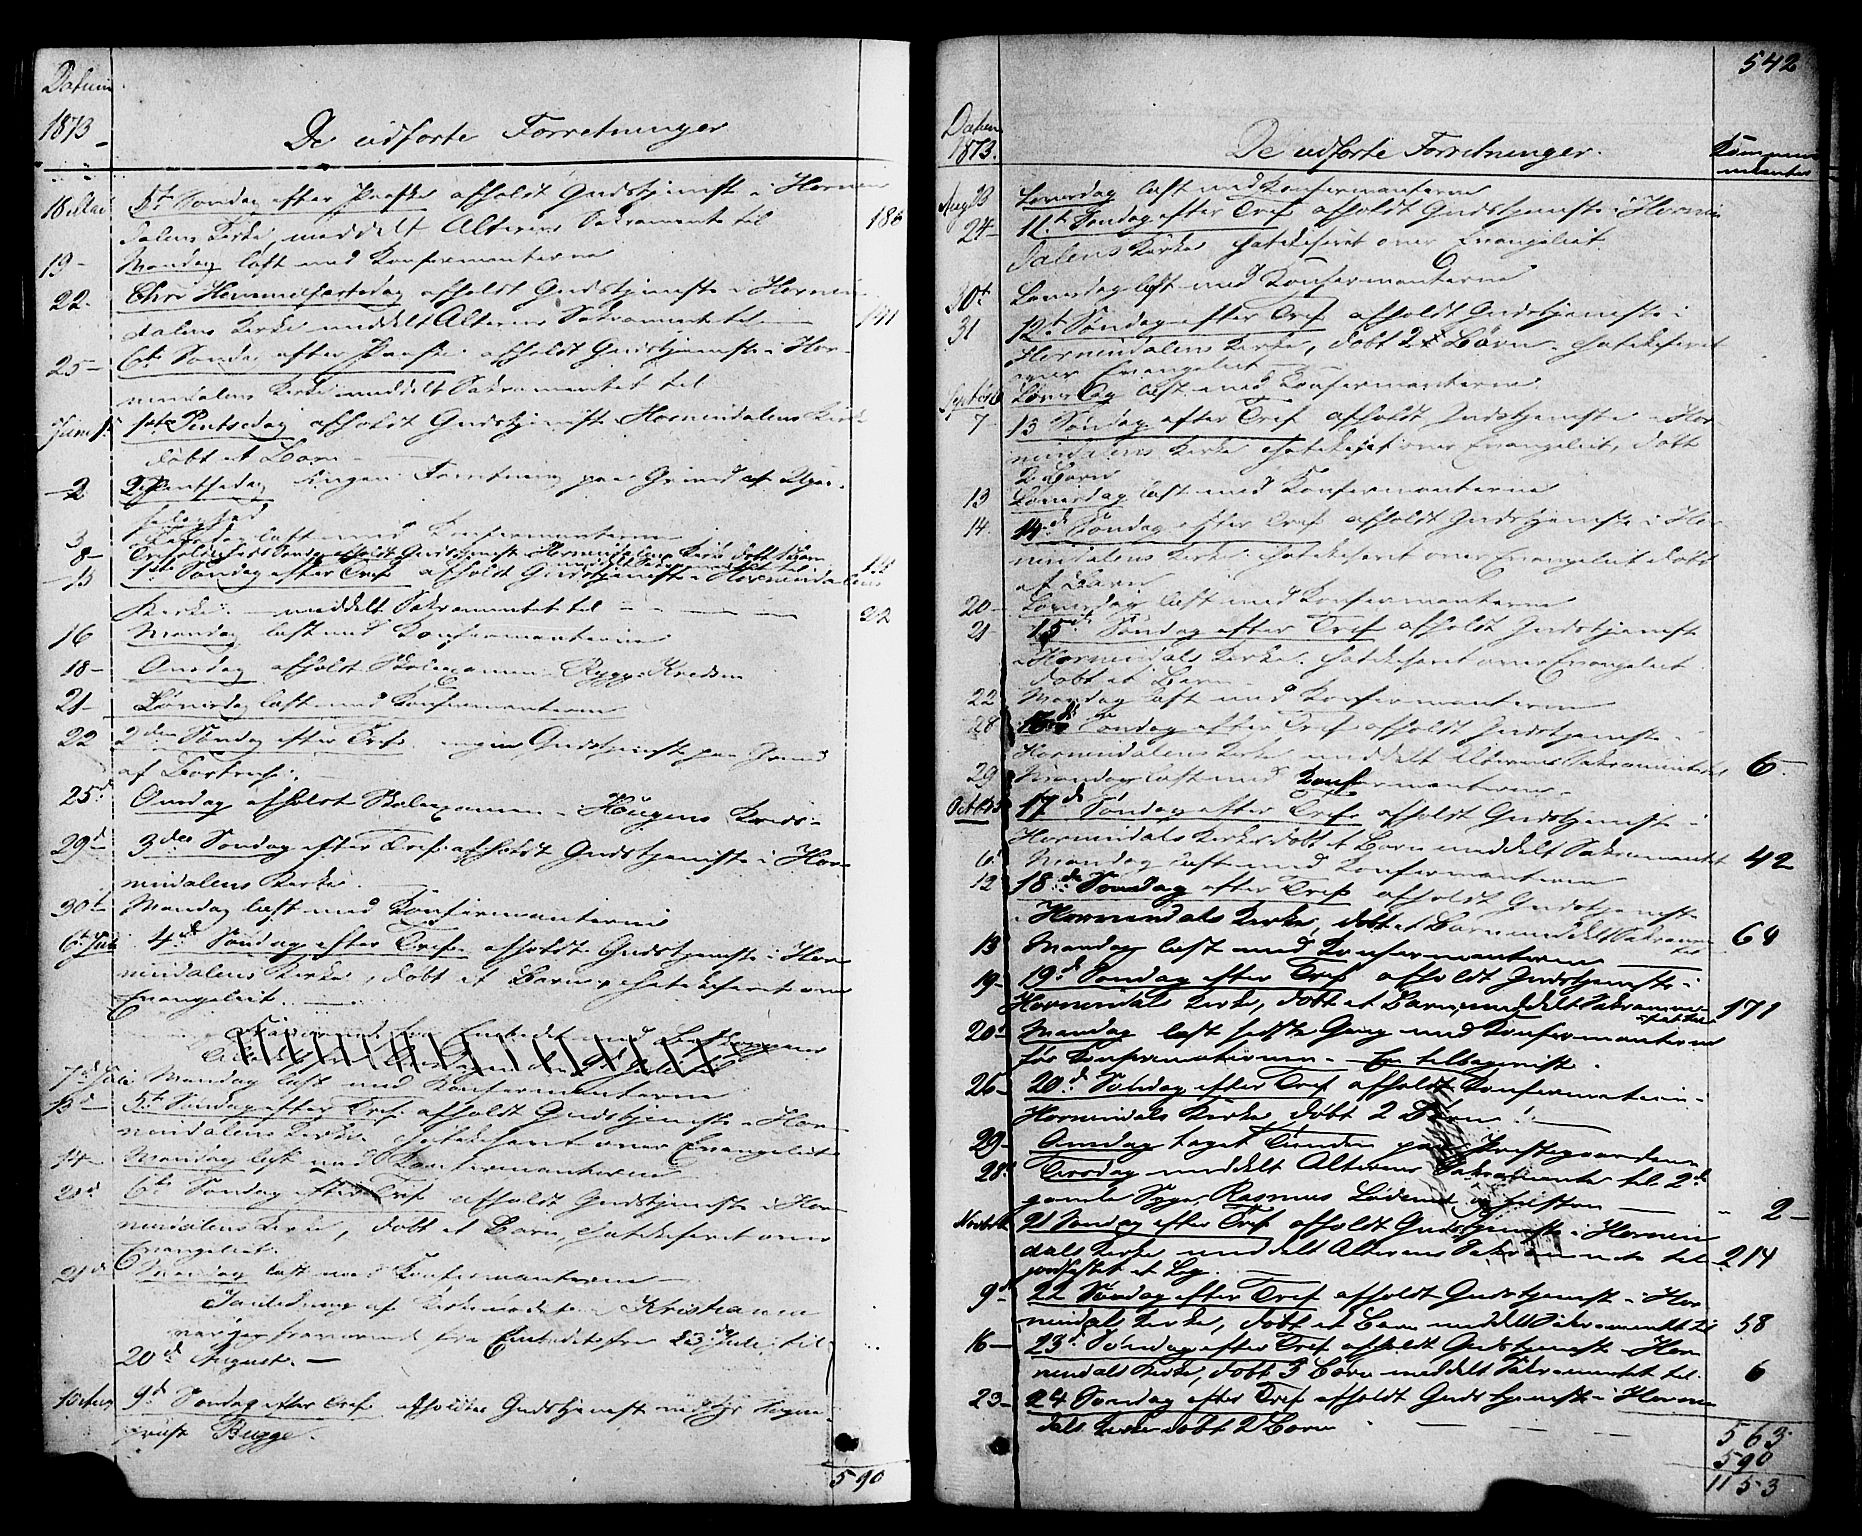 Datum
1873
De udførte Forretninger
18 Mai 5te Søndag efter Paaske afholdt Gudstjeneste i Hornin
dalens Kirke, meddelt Alterens Sakramente til 186
19 Mandag læst med Konfermanterne
22 Chri Himmelfartsdag afholdt Gudstjeneste i Hornin
dalens Kirke meddelt Alterens Sakramente til 141
25 6te Søndag efter Paaske afholdt Gudstjeneste i Hor-
nindalens Kirke meddelt Sakramentet til
Juni 1ste 1ste Pintsedag afholdt Gudstjeneste Hornindalens Kirke
døbt et Barn
2 2 Pintsedag ingen Forretning paa Grund af Upas-
selighed
3 læst med Konfermanterne
8 Trefoldigheds Søndag afholdt Gudstjeneste Hornindalens Kirke døbt Barn
meddelt Sakramentet til
15 1ste Søndag efter Tref afholdt Gudstjeneste i Hornindalens
Kirke meddelt Sakramentet til 32
16 Mandag læst med Konfermanterne
18 Onsdag afholdt Skoleexamen Rygg Kredsen
21 Løverdag læst med Konfermanterne
22 2den Søndag efter Tref. ingen Gudstjeneste paa Grund
af
25d Onsdag afholdt Skoleexamen Haugens Kreds
29d 3die Søndag efter Tref afholdt Gudstjeneste i Hor
nindalens Kirke.
30te Mandag læst med Konfermanterne
6te Juli 4de Søndag efter Tref. afholdt Gudstjeneste i Hor
nindalens Kirke, døbt et Barn, katekiseret over
Evangeliet.
7de Juli Mandag læst med Konfermanterne
13d 5te Søndag efter Tref. afholdt Gudstjeneste i Hor-
nindalens Kirke katekiseret over Evangeliet
14 Mandag læst med Konfermanterne
20d 6te Søndag efter Tref afholdt Gudstjeneste i Hor
nindalens Kirke, døbt et Barn, katekiseret over
Evangeliet.
21de Mandag læst med Konfermanterne
I anledning af Kirkemødet i Kristiania
var jeg fraværende fra Embedet fra 23de Juli til
20d August.
9d Søndag efter Tref afholdtes Gudstjeneste ved Sogne
præst Bugge.
590
542
Datum
1873.
De udførte Forretninger.
Kommuni
canter
Aug 23 Løverdag læst med Konfermanterne
24 11te Søndag efter Tref afholdt Gudstjeneste i Hornin
dalens Kirke katekiseret over Evangeliet
30te Løverdag læst med Konfermanterne
31 12te Søndag efter Tref afholdt Gudstjeneste i
Hornindalens Kirke, døbt 2 Børn katekiseret
over Evangeliet
Septbr 6 Løverdag læst med Konfermanterne
7 13 Søndag efter Tref afholdt Gudstjeneste i Hor
nindalens Kirke katekiseret over Evangeliet, døbt
2 Børn
13 Løverdag læst med Konfermanterne
14 14de Søndag efter Tref afholdt Gudstjeneste i Hor
nindalens Kirke katekiseret over Evangeliet døbt
et Barn
20 Løverdag læst med Konfermanterne
21 15de Søndag efter Tref afholdt Gudstjeneste
i Hornindals Kirke. katekiseret over Evangeliet.
døbt et Barn
22 Mandag læst med Konfermanterne
28 16de Søndag efter Tref afholdt Gudstjeneste i
Hornindalens Kirke meddelt Alterens Sakramente til 6
29 Mandag læst med Konfermanterne.
Octbr 5 17de Søndag efter Tref. afholdt Gudstjeneste i
Hornindals Kirke døbt et Barn meddelt Sakramentet 42
6 Mandag læst med Konfermanterne
12 18de Søndag efter Tref afholdt Gudstjeneste
i Hornindals Kirke, døbt et Barn meddelt Sakramen
tet 64
13 Mandag læst med Konfermanterne
19 19d Søndag efter Tref afholdt Gudstjeneste i
Hornindals Kirke, døbt et Barn, meddelt Sakramen-
tet til 171
20 Mandag læst sidste Gang med Konfermanterne
før Konfermationen.
26 20d Søndag efter Tref afholdt Konfermation i
Hornindals Kirke, døbt 2 Børn
29 Onsdag taget Tienden paa Prestegaarden
28 Tirsdag meddelt Alterens Sakramente til 2d
gamle Syge, Rasmus Lødemel og 2
Novbr 21 Søndag efter Tref afholdt Gudstjeneste i Hornin
dals Kirke meddelt Alterens Sakramente til 214
jordfæstet et Lig.
9d 22 Søndag efter Tref afholdt Gudstjeneste i Hor
nindals Kirke, døbt et Barn meddelt Sakramentet til 58
16 23d Søndag efter Tref afholdt Gudstjeneste Hor
nindals Kirke, døbt 3 Børn meddelt Sakramentet til 6
23 24 Søndag efter Tref afholdt Gudstjeneste i Hornin
dals Kirke døbt 2 Børn
563
590
1153